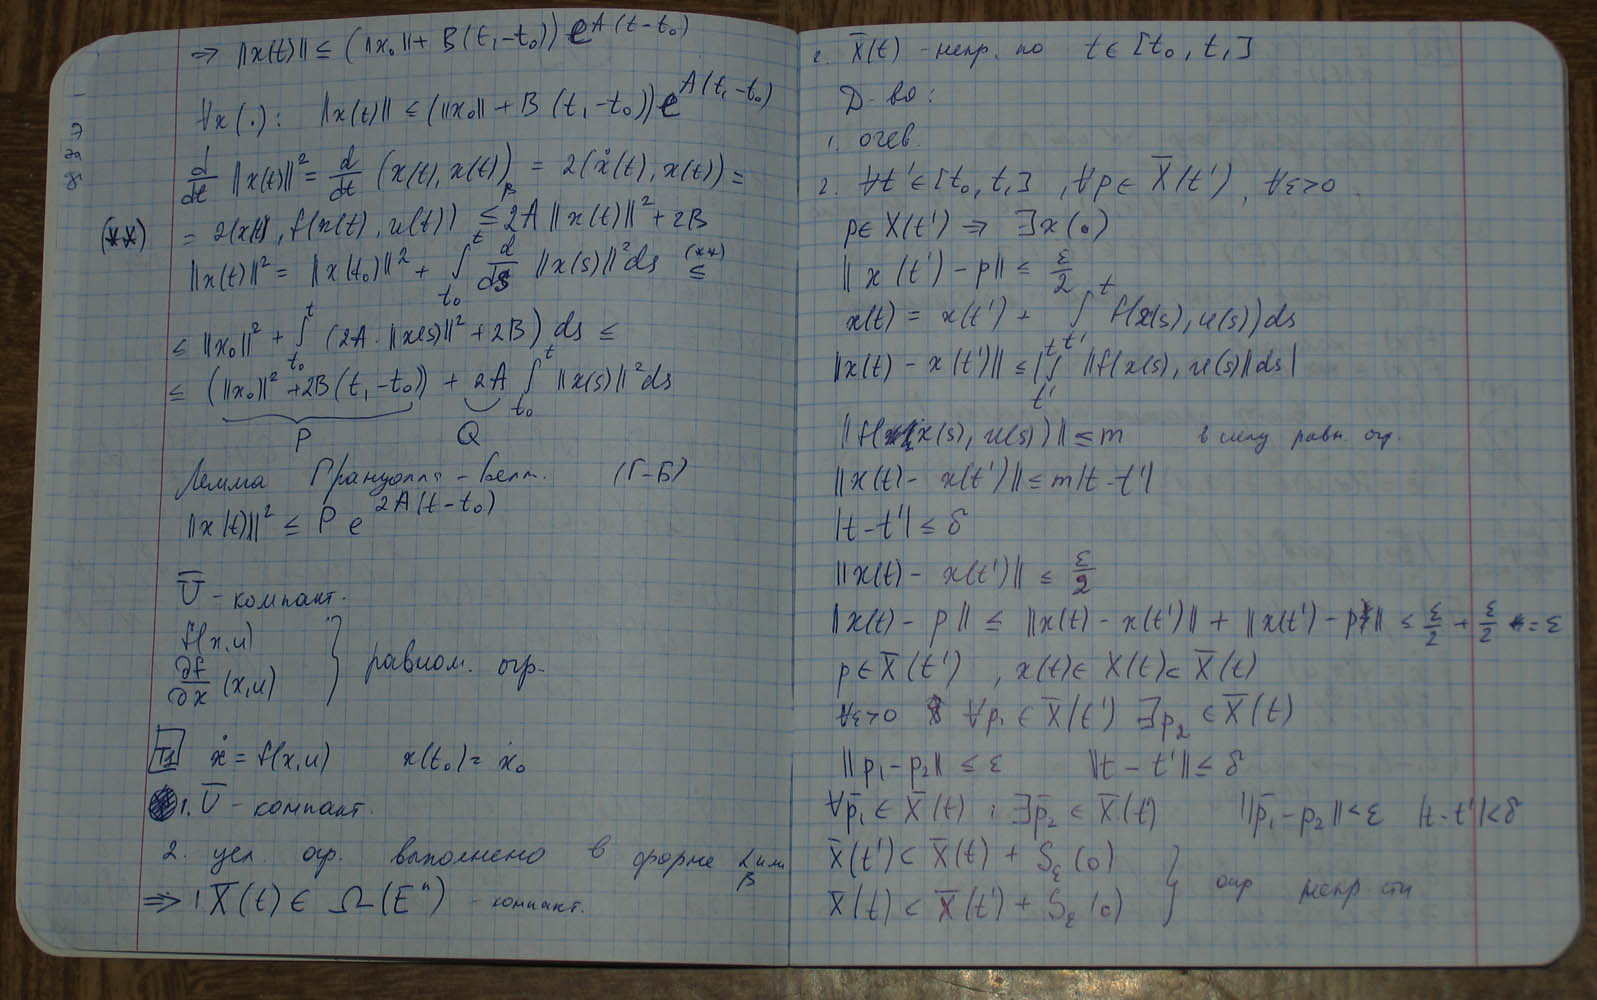 ⇒ ||x(t)|| ≤ (||x₀|| + B(t₁-t₀)) e^{A(t-t₀)}
∀x(·): ||x(t)|| ≤ (||x₀|| + B(t₁-t₀)) e^{A(t₁-t₀)}
d/dt ||x(t)||² = d/dt (x(t), x(t)) = 2(ẋ(t), x(t)) =
(**) = 2(x(t), f(x(t), u(t)) ≤^β 2A||x(t)||² + 2B
||x(t)||² = ||x(t₀)||² + ∫_{t₀}^{t} d/ds ||x(s)||² ds ≤^{(**)}
≤ ||x₀||² + ∫_{t₀}^{t} (2A·||x(s)||² + 2B) ds ≤
≤ (||x₀||² + 2B(t₁-t₀)) + 2A ∫_{t₀}^{t} ||x(s)||² ds
P Q
Лемма Гронуолла-Белл. (Г-Б)
||x(t)||² ≤ P e^{2A(t-t₀)}
U̅ - компакт.
f(x,u)
∂f/∂x (x,u) } равном. огр.
T1 ẋ = f(x,u) x(t₀) = x₀
1. U̅ - компакт.
2. усл. огр. выполнено в форме α или β
⇒ 1 X̅(t) ∈ Ω(Eⁿ) - компакт.
2. X̅(t) - непр. по t ∈ [t₀, t₁]
Д-во:
1. очев.
2. ∀t' ∈ [t₀, t₁], ∀p ∈ X̅(t'), ∀ε>0
p ∈ X̅(t') ⇒ ∃x(·)
||x(t') - p|| ≤ ε/2
x(t) = x(t') + ∫_{t'}^{t} f(x(s), u(s)) ds
||x(t) - x(t')|| ≤ |∫_{t'}^{t} ||f(x(s), u(s)|| ds|
||f(x(s), u(s))|| ≤ m в силу равн. огр.
||x(t) - x(t')|| ≤ m|t-t'|
|t-t'| ≤ δ
||x(t) - x(t')|| ≤ ε/2
||x(t) - p|| ≤ ||x(t) - x(t')|| + ||x(t') - p|| ≤ ε/2 + ε/2 = ε
p ∈ X̅(t'), x(t) ∈ X(t) ⊂ X̅(t)
∀ε>0 ∀p₁ ∈ X̅(t') ∃p₂ ∈ X̅(t)
||p₁-p₂|| ≤ ε ||t-t'|| ≤ δ
∀p̅₁ ∈ X̅(t); ∃p̅₂ ∈ X̅(t') ||p̅₁-p̅₂|| < ε |t-t'| < δ
X̅(t') ⊂ X̅(t) + S_ε(0)
X̅(t) ⊂ X̅(t') + S_ε(0) } опр непр-сти